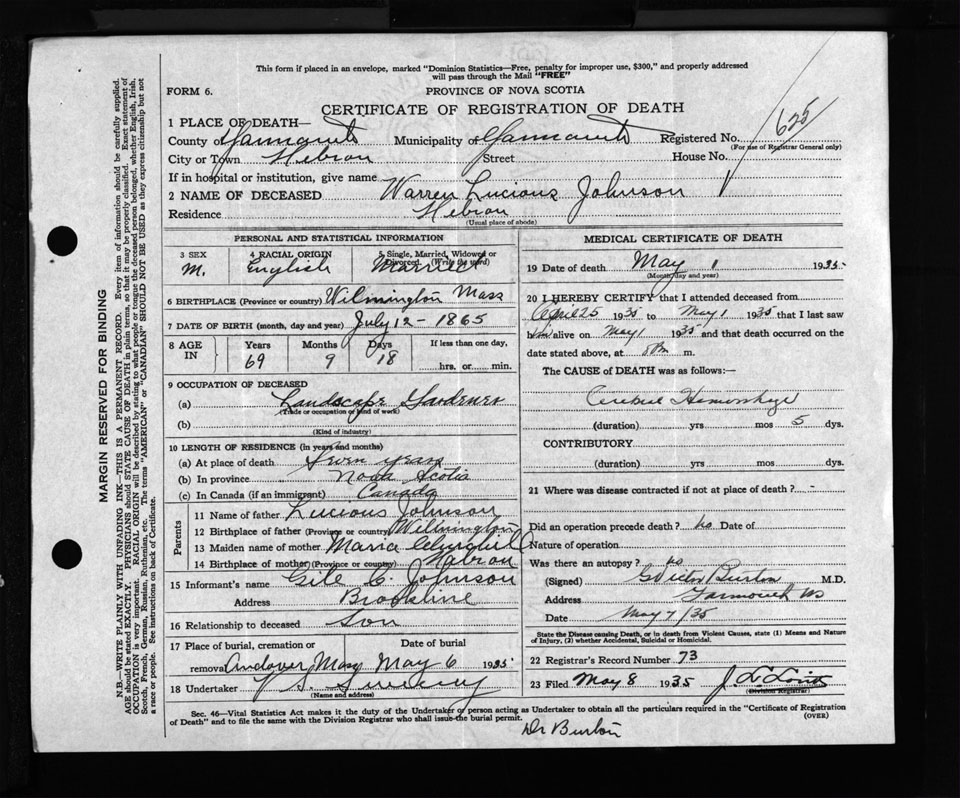 This form if placed in an envelope, marked "Dominion Statistics—Free, penalty for improper use, $300," and properly addressed
will pass through the Mail "FREE"
FORM 6.
PROVINCE OF NOVA SCOTIA
CERTIFICATE OF REGISTRATION OF DEATH
625
1 PLACE OF DEATH—
County of Yarmouth Municipality of Yarmouth Registered No.
(For use of Registrar General only)
City or Town Hebron Street House No.
If in hospital or institution, give name
2 NAME OF DECEASED Warren Lucious Johnson
Residence Hebron
(Usual place of abode)
PERSONAL AND STATISTICAL INFORMATION
3 SEX 4 RACIAL ORIGIN 5 Single, Married, Widowed or Divorced. (Write the word)
M. English Married
6 BIRTHPLACE (Province or country) Wilmington Mass
7 DATE OF BIRTH (month, day and year) July 12 - 1865
8 AGE IN Years Months Days If less than one day,
69 9 18 hrs. or min.
9 OCCUPATION OF DECEASED
(a) Landscape Gardener
(Trade or occupation or kind of work)
(b)
(Kind of industry)
10 LENGTH OF RESIDENCE (in years and months)
(a) At place of death Seven years
(b) In province Nova Scotia
(c) In Canada (if an immigrant) Canada
Parents
11 Name of father Lucious Johnson
12 Birthplace of father (Province or country) Wilmington
13 Maiden name of mother Maria
14 Birthplace of mother (Province or country) Hebron
15 Informant's name C. Johnson
Address Brookline
16 Relationship to deceased Son
17 Place of burial, cremation or removal Date of burial
Andover, Mass May 6 1935
18 Undertaker V. S. Sweeny
(Name and address)
MEDICAL CERTIFICATE OF DEATH
19 Date of death May 1 1935
(Month, day and year)
20 I HEREBY CERTIFY that I attended deceased from
April 25 1935 to May 1 1935 that I last saw
him alive on May 1 1935 and that death occurred on the
date stated above, at m.
The CAUSE of DEATH was as follows:—
Cerebral Hemorrhage
(duration) yrs mos 5 dys.
CONTRIBUTORY
(duration) yrs mos dys.
21 Where was disease contracted if not at place of death? -
Did an operation precede death? no Date of
Nature of operation
Was there an autopsy? no
(Signed) Burton M.D.
Address Yarmouth NS
Date May 7/35
State the Disease causing Death, or in death from Violent Causes, state (1) Means and Nature
of Injury, (2) whether Accidental, Suicidal or Homicidal.
22 Registrar's Record Number 73
23 Filed May 8 1935
(Division Registrar)
Sec. 46—Vital Statistics Act makes it the duty of the Undertaker or person acting as Undertaker to obtain all the particulars required in the "Certificate of Registration
of Death" and to file the same with the Division Registrar who shall issue the burial permit.
(OVER)
Dr Burton
MARGIN RESERVED FOR BINDING
N.B.—WRITE PLAINLY WITH UNFADING INK—THIS IS A PERMANENT RECORD. Every item of information should be carefully supplied.
AGE should be stated EXACTLY. PHYSICIANS should STATE CAUSE OF DEATH in plain terms, so that it may be properly classified. Exact statement of
OCCUPATION is very important. RACIAL ORIGIN will be described by stating to what people or tongue the deceased person belonged, whether English, Irish,
Scotch, French, German, Russian, Ruthenian, etc. The terms "AMERICAN" or "CANADIAN" SHOULD NOT BE USED as they express citizenship but not
a race or people. See instructions on back of Certificate.